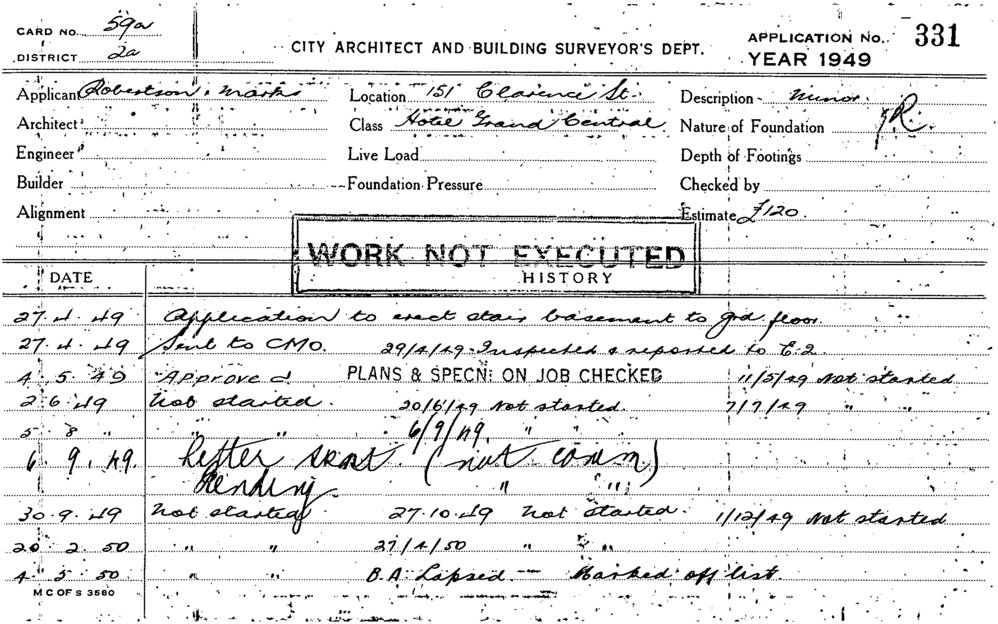 CARD NO. 59a
DISTRICT 2a
CITY ARCHITECT AND BUILDING SURVEYOR'S DEPT.
APPLICATION No. 331
YEAR 1949
Applicant Robertson & Marks Location 151 Clarence St. Description Minor.
Architect Class Hotel Grand Central Nature of Foundation
Engineer Live Load Depth of Footings
Builder Foundation Pressure Checked by
Alignment Estimate £120
WORK NOT EXECUTED
DATE HISTORY
27.4.49 Application to erect stair basement to grd floor.
27.4.49 Sent to CMO. 29/4/49 Inspected & reported to E.2.
4.5.49 Approved PLANS & SPECN: ON JOB CHECKED 11/5/49 Not started
2.6.49 Not started. 20/6/49 Not started. 7/7/49 " "
5 8 " " " 6/9/49. " "
6.9.49. Letter sent. (not comm)
Pending " "
30.9.49 Not started 27.10.49 Not started. 1/12/49 Not started
20.2.50 " " 27/4/50 " "
4.5.50 " " B.A. Lapsed — Marked off list.
M C OF S 3580